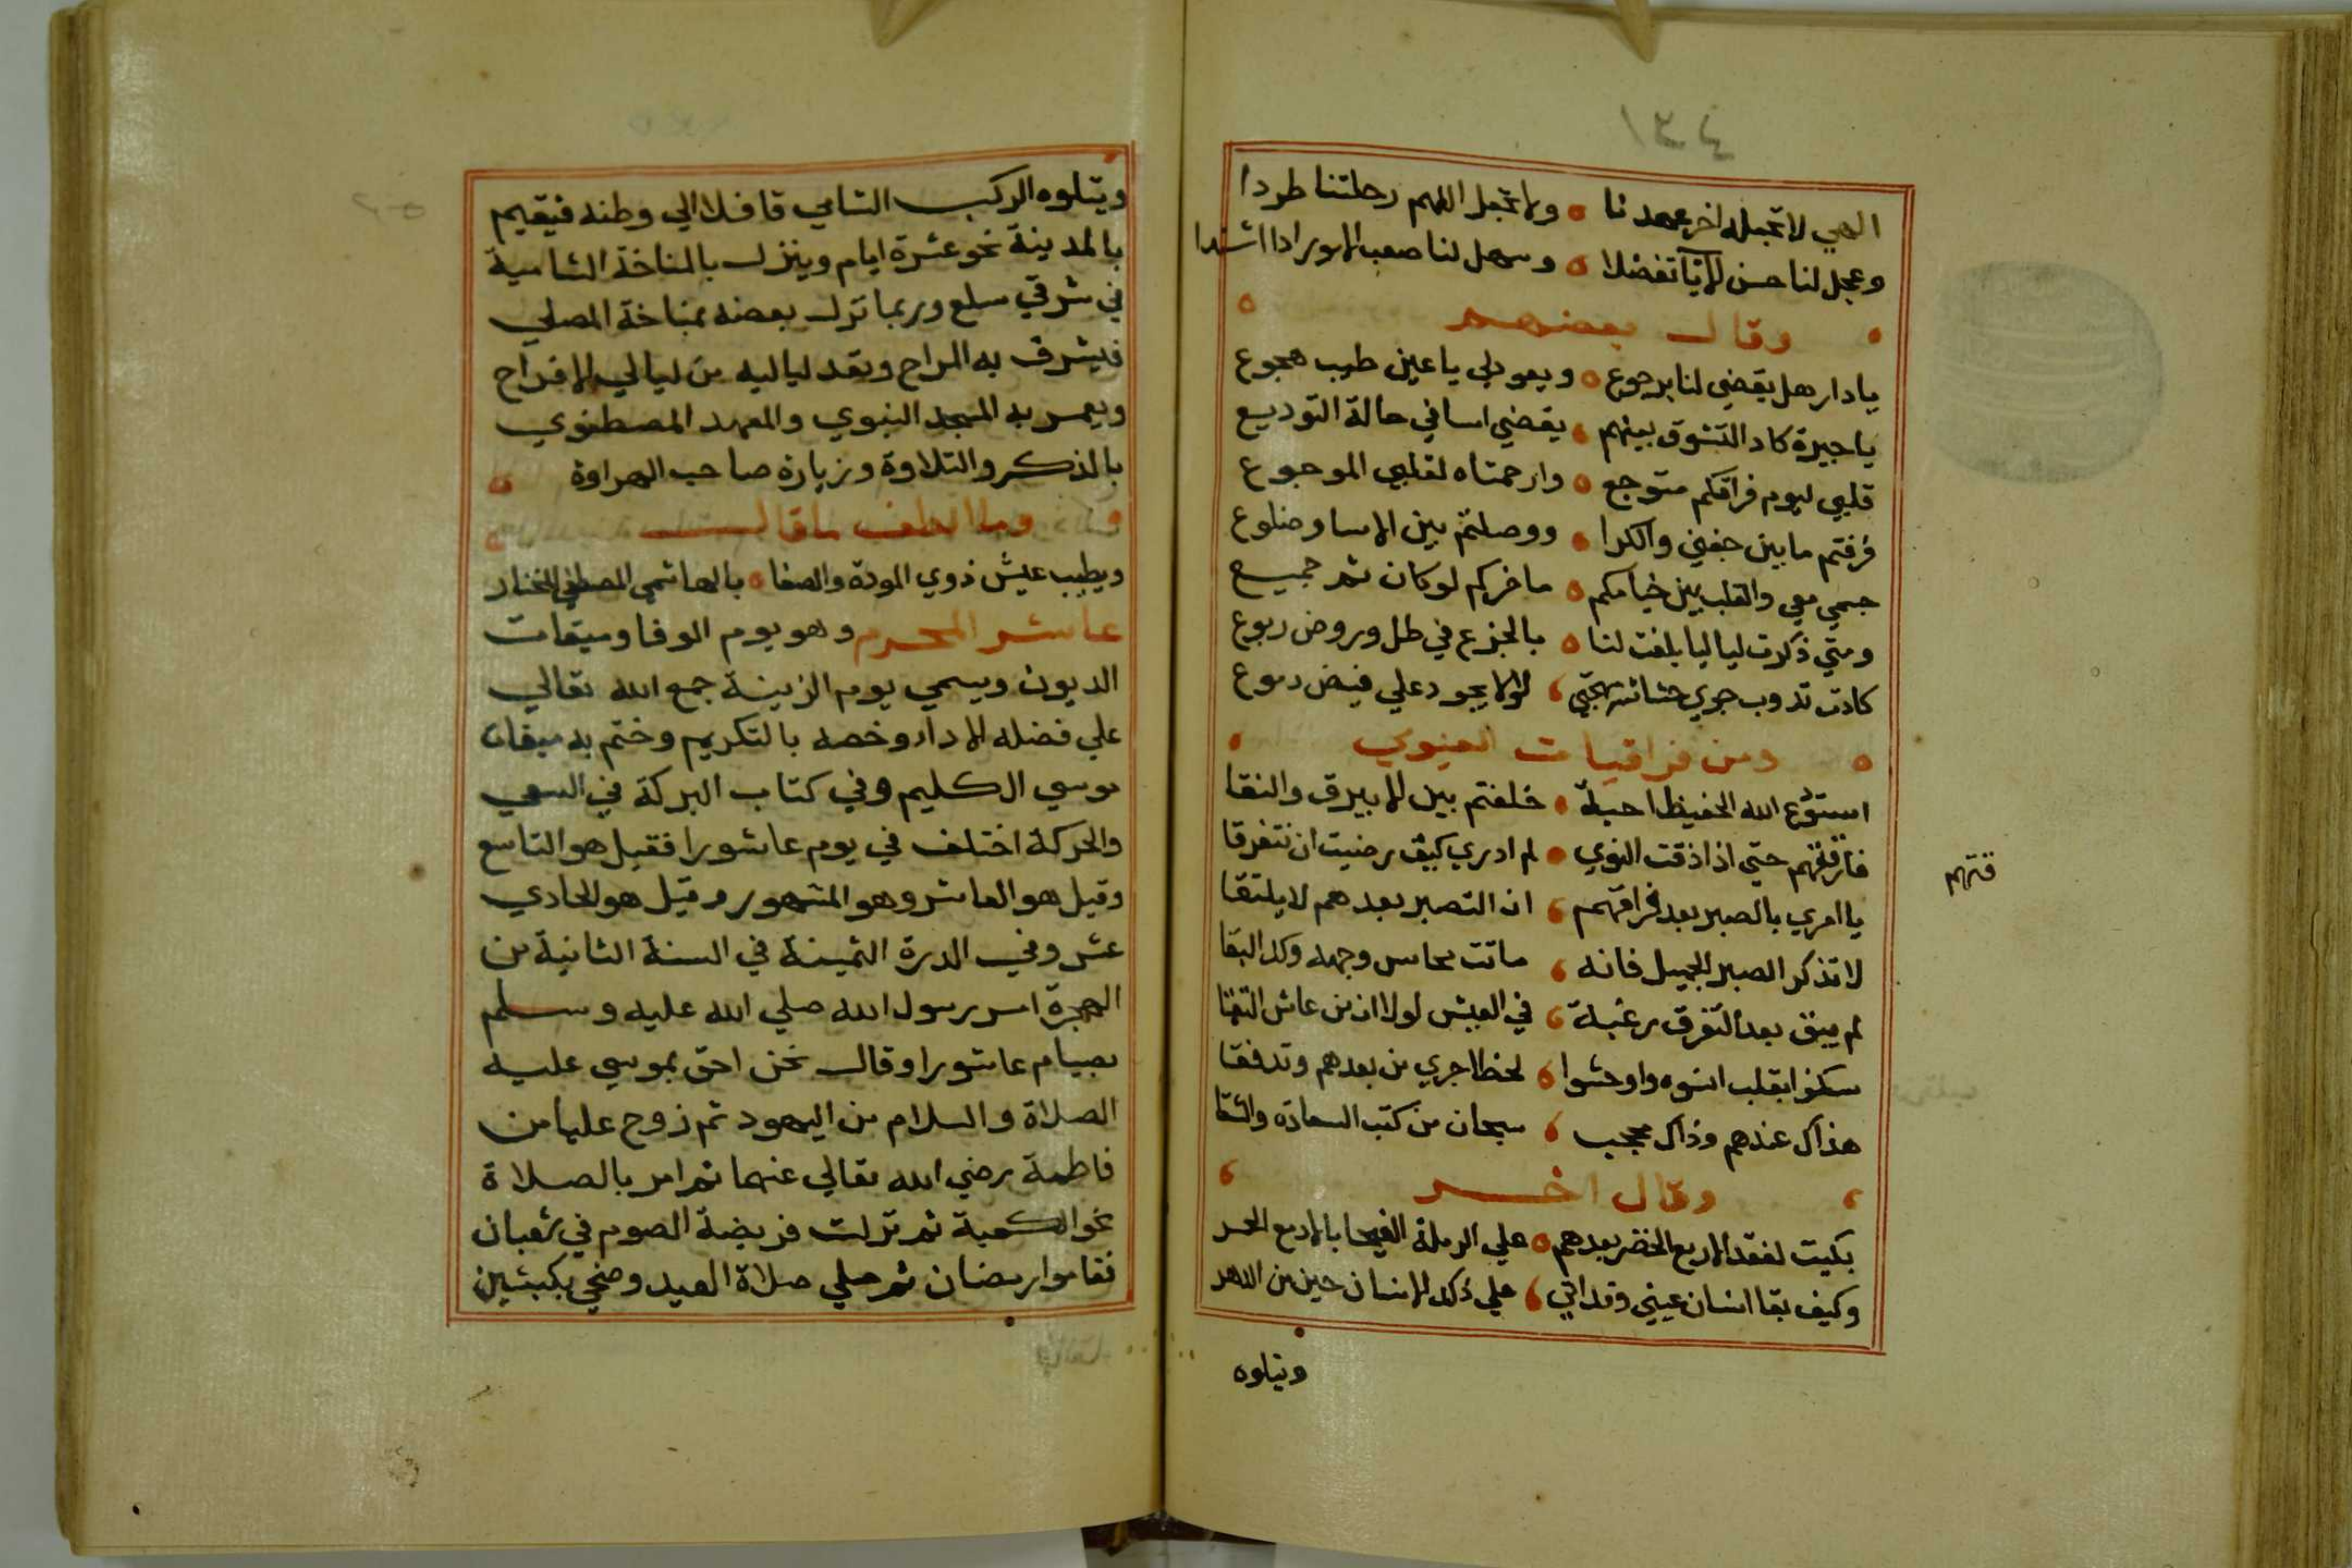 الهي لا تجعله اخر عهدنا ه ولا تجعل اللهم رحلتنا طردا
وعجل لنا حسن الايآ تفضلا ه وسهل لنا صعب الامور اذا اشتدا
وقال بعضهم
يا دار هل يقضي لنا برجوع ه ويعود لي يا عين طيب هجوع
يا جيرة كاد التشوق بينهم يقضي اسا في حالة التوديع
قلبي ليوم فراقكم متوجع ه وارحمتاه لقلبي الموجوع
فرقتم ما بين جفني والكرا ووصلتم بين الاسا وضلوع
جسمي معي والقلب بين خيامكم ه ما ضركم لو كان ثم جميع
ومتي ذكرت لياليا بلغت لنا ه بالجزع في ظل وروض ربوع
كادت تذوب جوي حشاشة مهجتي لولا يجود علي فيض دموع
ومن فراقيات
استودع الله الحفيظ احبة خلفتم بين الابيرق والنقا
فارقتهم حتي اذا ذقت النوي لم ادري كيف رضيت ان نتفرقا
يا امري بالصبر بعد فراقهم ان التصبر بعدهم لا يلتقا
لا تذكر الصبر الجميل فانه ماتت محاسن وجهه ولك البقا
لم يبق بعد التفرق رغبة في العيش لولا ان من عاش التقا
سكنوا بقلب انسوه واوحشوا لحظا جري من بعدهم وتدفقا
هذاك عندهم وذاك محجب سبحان من كتب السعادة والشقا
وقال اخر
بكيت لفقد الاربع الخضر بعدهم ه علي الرملة الفيحا بالادمع الحمر
وكيف بقا انسان عيني وقد اتي علي ذلك الانسان حين من الدهر
ويتلوه
قتهم
ويتلوه الركب الشامي قافلا الي وطنه فيقيم
بالمدينة نحو عشرة ايام وينزل بالمناخة الشامية
في شرقي سلع وربما نزل بعضه بمناخة المصلي
فيشرق به المراح وتعد لياليه من ليالي الافراح
ويعمر به المسجد النبوي والمعهد المصطفوي
بالذكر والتلاوة وزيارة صاحب الهراوة ه
وما الطف ما قال
ويطيب عيش ذوي المودة والصفا ه بالهاشمي المصطفي المختار
عاشر المحرم وهو يوم الوفا وميقات
الديون ويسمي يوم الزينة جمع الله تعالي
علي فضله الادا وخصه بالتكريم وختم به ميقات
موسي الكليم وفي كتاب البركة في السعي
والحركة اختلف في يوم عاشورا فقيل هو التاسع
وقيل هو العاشر وهو المشهور وقيل هو الحادي
عشر وفي الدرة الثمينة في السنة الثانية من
الهجرة امر رسول الله صلي الله عليه وسلم
بصيام عاشورا وقال نحن احق بموسي عليه
الصلاة والسلام من اليهود ثم زوج عليا من
فاطمة رضي الله تعالي عنهما ثم امر بالصلاة
نحو الكعبة ثم نزلت فريضة الصوم في شعبان
فقاموا رمضان ثم صلي صلاة العيد وضحي بكبشين